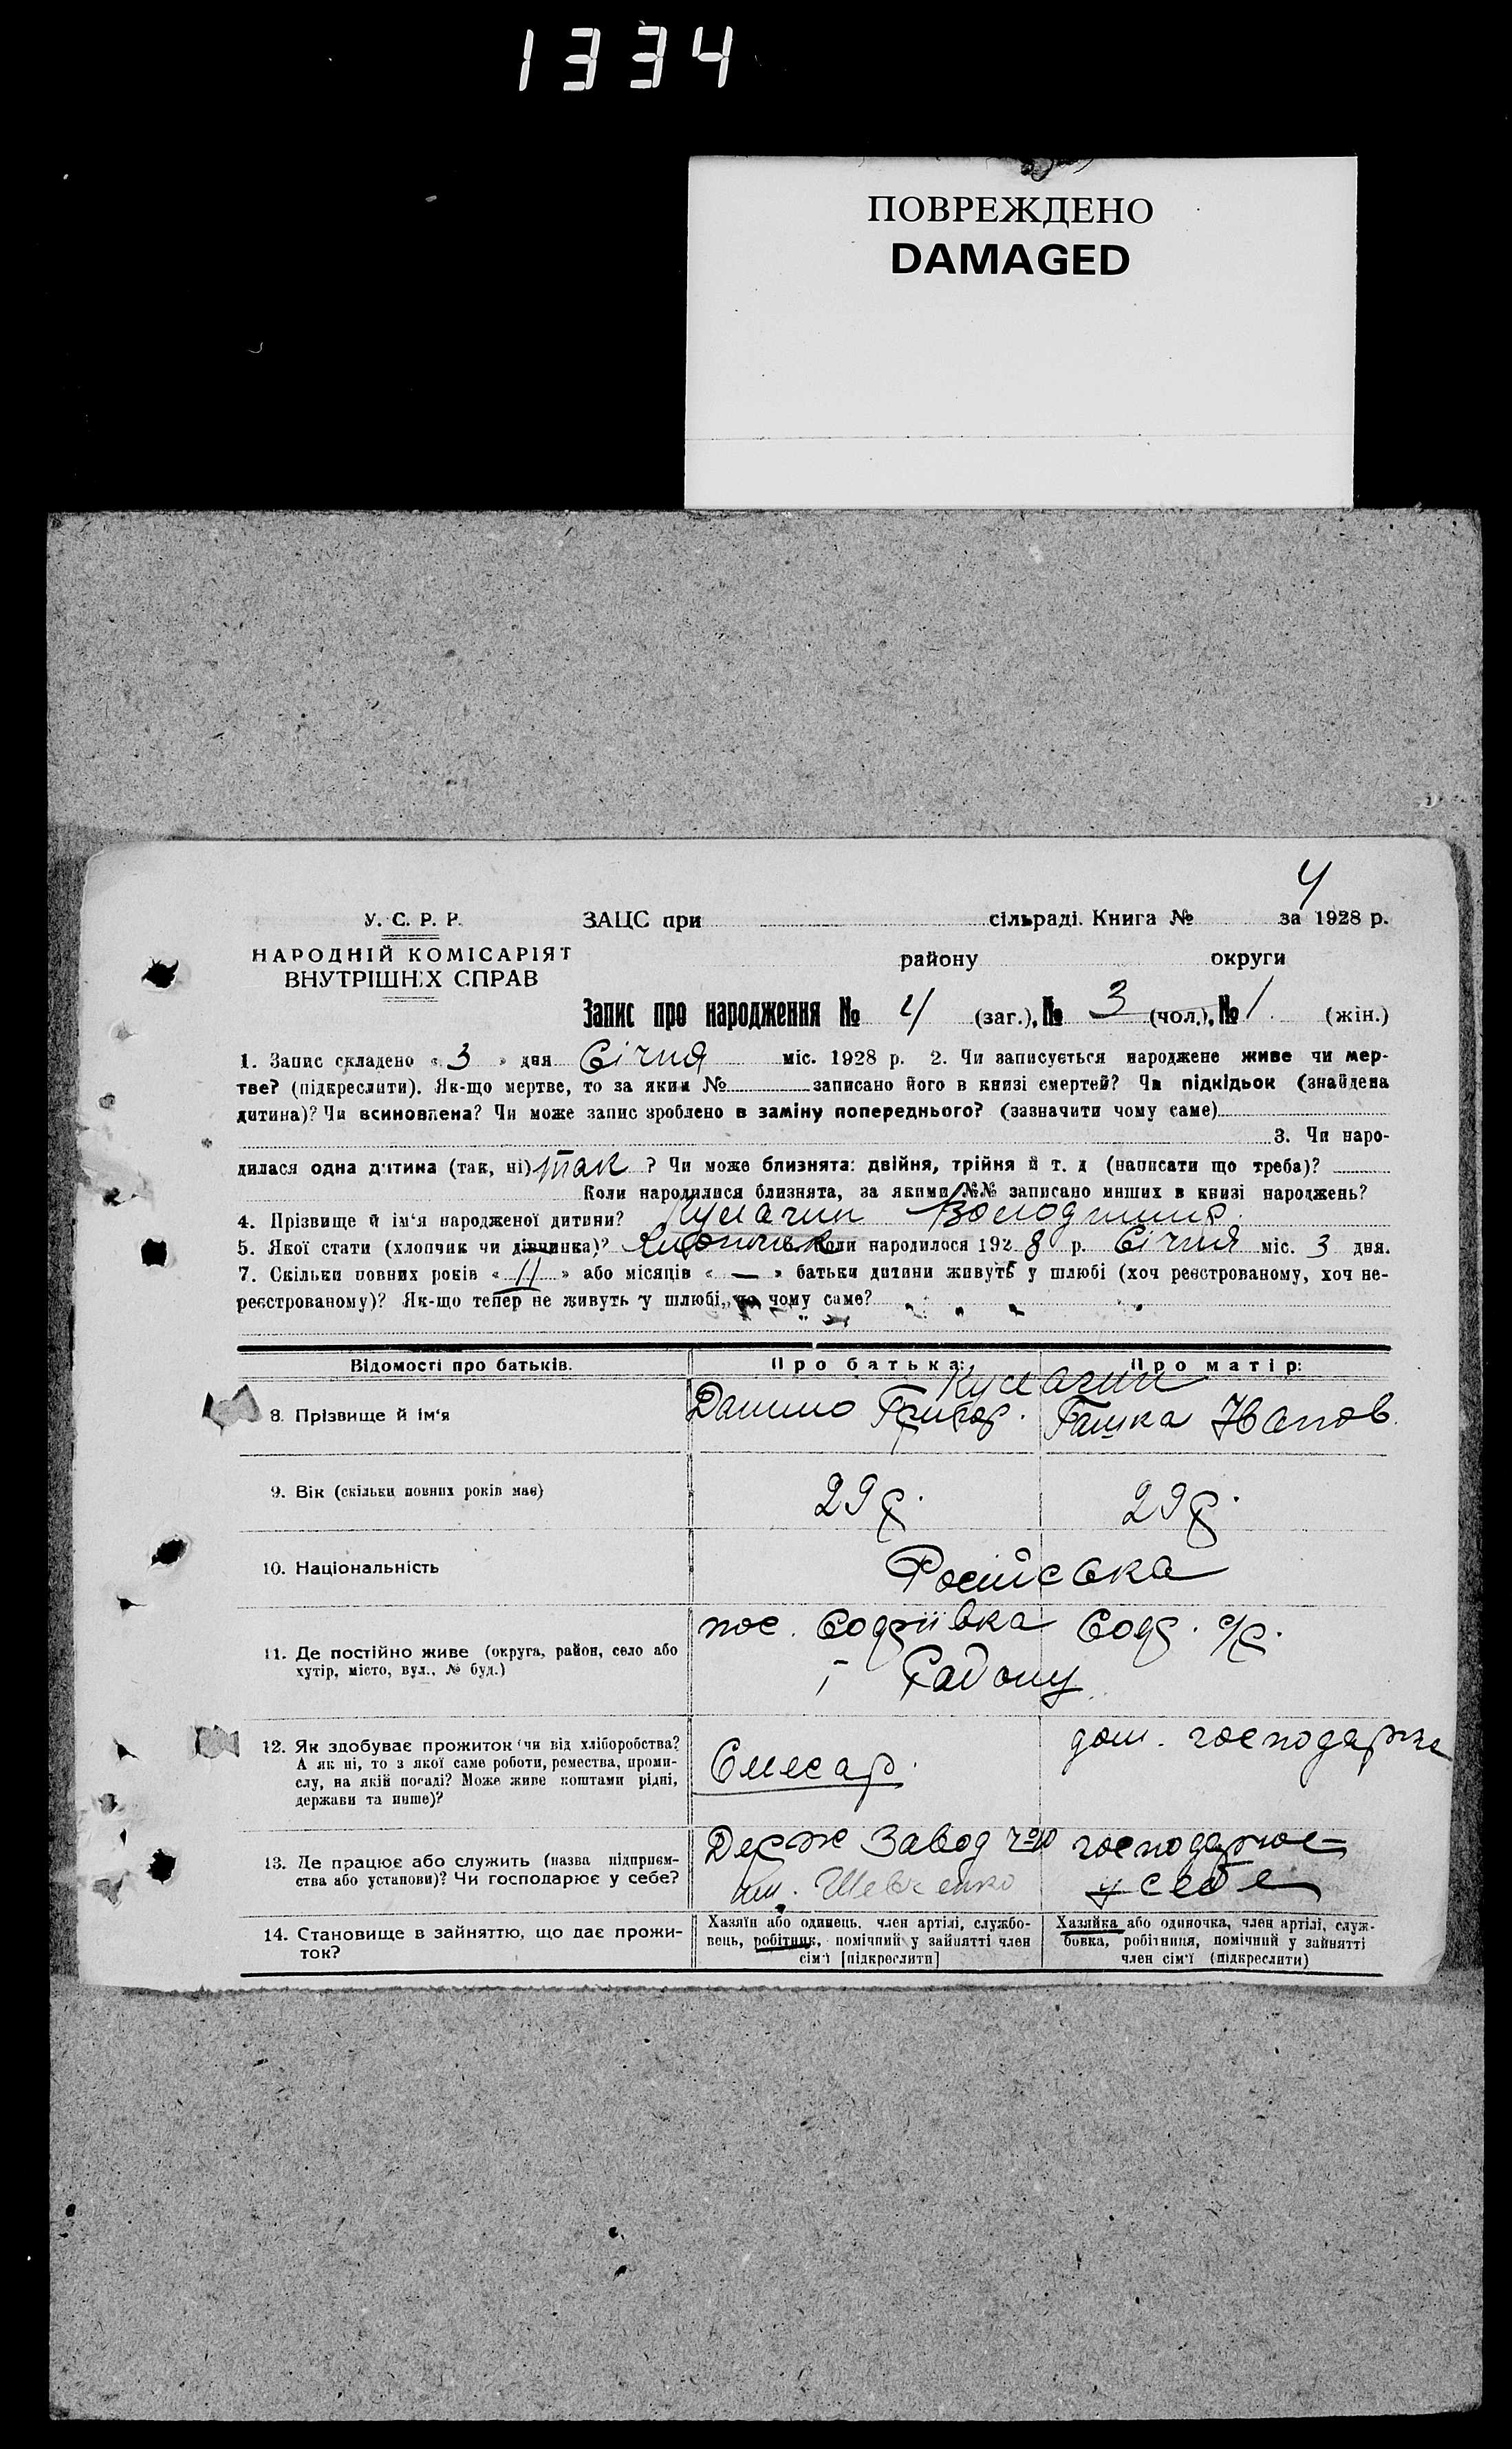 1334
ПОВРЕЖДЕНО
DAMAGED
4
У. С. Р. Р. ЗАЦС при сільраді. Книга № за 1928 р.
НАРОДНІЙ КОМІСАРІЯТ
ВНУТРІШНІХ СПРАВ
району округи
Запис про народження № 4 (заг.), № 3 (чол.), № 1 (жін.)
1. Запис складено « 3 » дня Січня міс. 1928 р. 2. Чи записується народжене живе чи мер-
тве? (підкреслити). Як-що мертве, то за яким № записано його в книзі смертей? Чи підкідьок (знайдена
дитина)? Чи всиновлена? Чи може запис зроблено в заміну попереднього? (зазначити чому саме)
3. Чи наро-
дилася одна дитина (так, ні) так ? Чи може близнята: двійня, трійня й т. д (написати що треба)?
Коли народилися близнята, за якими №№ записано инших в книзі народжень?
4. Прізвище й ім'я народженої дитини? Кулагин
5. Якої стати (хлопчик чи дівчинка)? Хлопчик Коли народилося 1928 р. Січня міс. 3 дня.
7. Скільки повних років « 11 » або місяців « — » батьки дитини живуть у шлюбі (хоч реєстрованому, хоч не-
реєстрованому)? Як-що тепер не живуть у шлюбі, то чому саме?
Відомості про батьків. Про батька: Про матір:
Кулагин
8. Прізвище й ім'я Данило Григор. Іванов
9. Вік (скільки повних років має) 29 р. 29 р.
10. Національність Російська
11. Де постійно живе (округа, район, село або
хутір, місто, вул., № буд.)
пос. Софіївка Соф. с/р.
Району
12. Як здобуває прожиток чи від хліборобства?
А як ні, то з якої саме роботи, ремества, проми-
слу, на якій посаді? Може живе коштами рідні,
держави та инше)?
Слесар. дом. господарка
13. Де працює або служить (назва підприєм-
ства або установи)? Чи господарює у себе?
Держ Завод
ім. Шевченко
господарює
у себе
14. Становище в зайняттю, що дає прожи-
ток?
Хазяїн або одинець, член артілі, службо-
вець, робітник, помічний у зайнятті член
сім'ї [підкреслити]
Хазяйка або одиночка, член артілі, служ-
бовка, робітниця, помічний у зайнятті
член сім'ї (підкреслити)